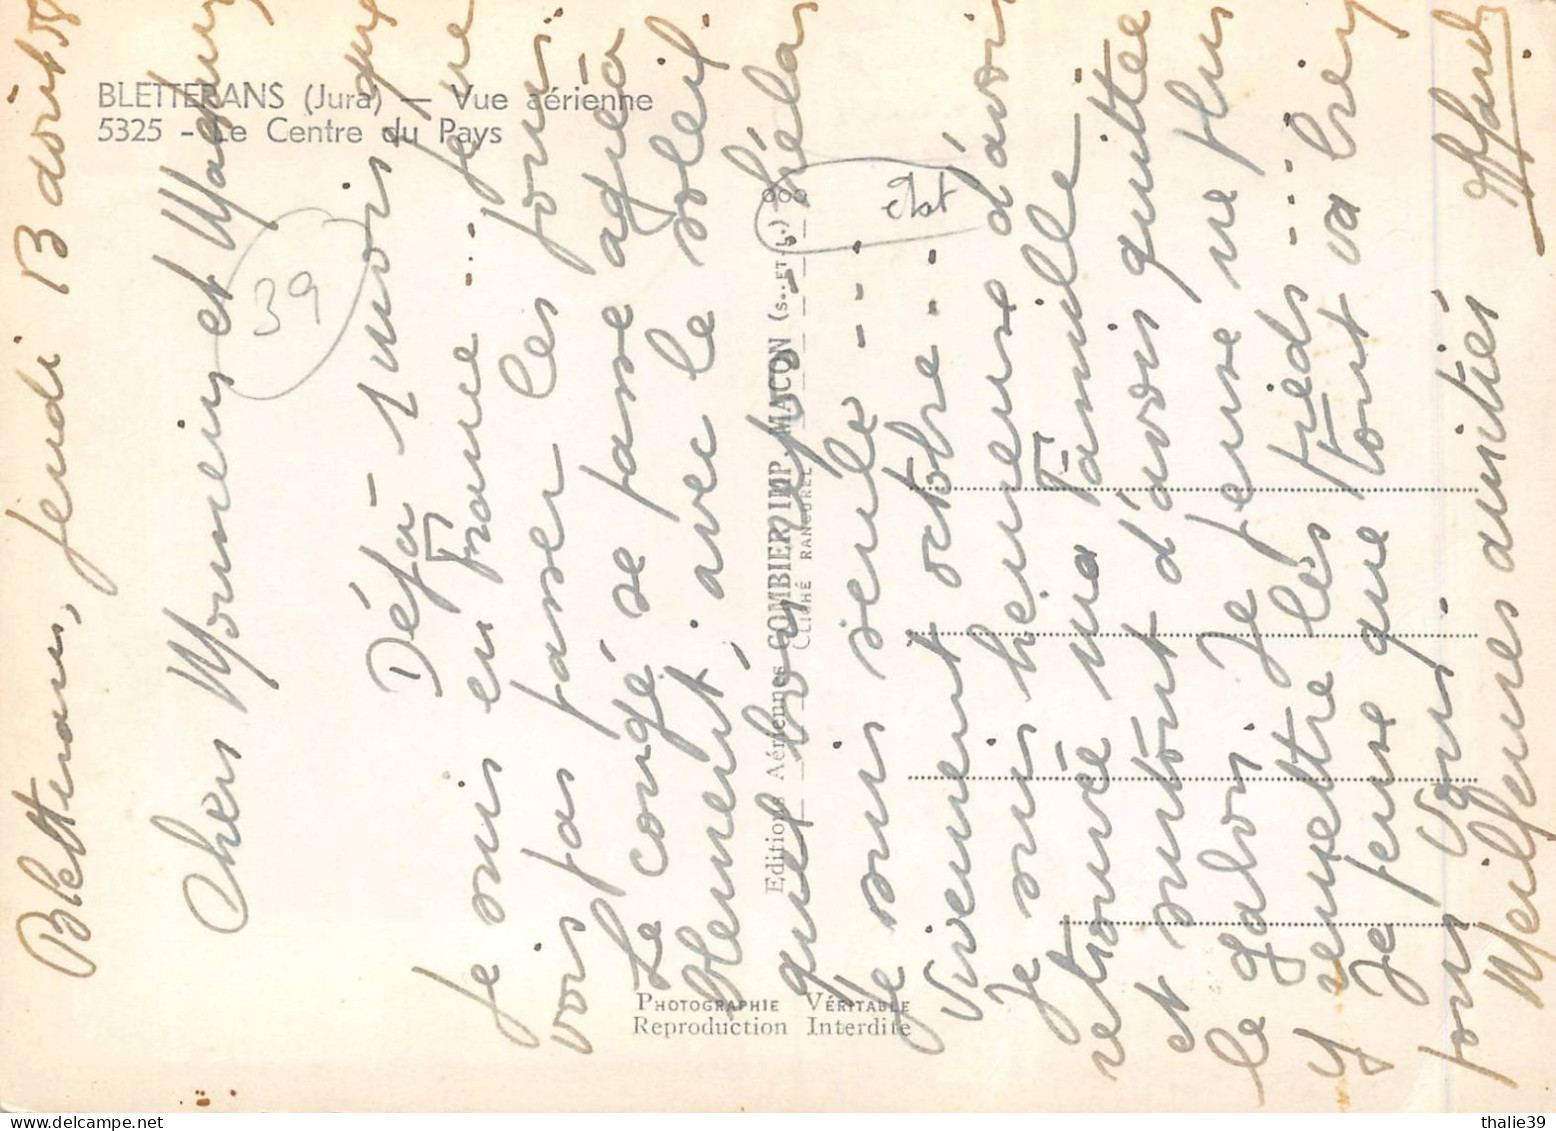 BLETTERANS (Jura) — Vue aérienne
5325 - Le Centre du Pays
39
état
Editions Aériennes COMBIER IMP. MACON (S.-ET-L.)
CLICHÉ RANCUREL
PHOTOGRAPHIE VÉRITABLE
Reproduction Interdite
Bletterans, jeudi 13 août 58
Chers Monsieur et
Déjà - 1 mois que
je suis en France ... je ne
vois pas passer les jours
Le congé se passe
avec le soleil.
hélas
je suis seule ---
Vivement octobre ---
Je suis heureuse d'avoir
retrouvé ma Famille
et surtout d'avoir quittée
le gabon. Je pense ne plus
y remettre les pieds ---
Je pense que tout va bien
pour Vous.
Meilleures amitiés
thalie39